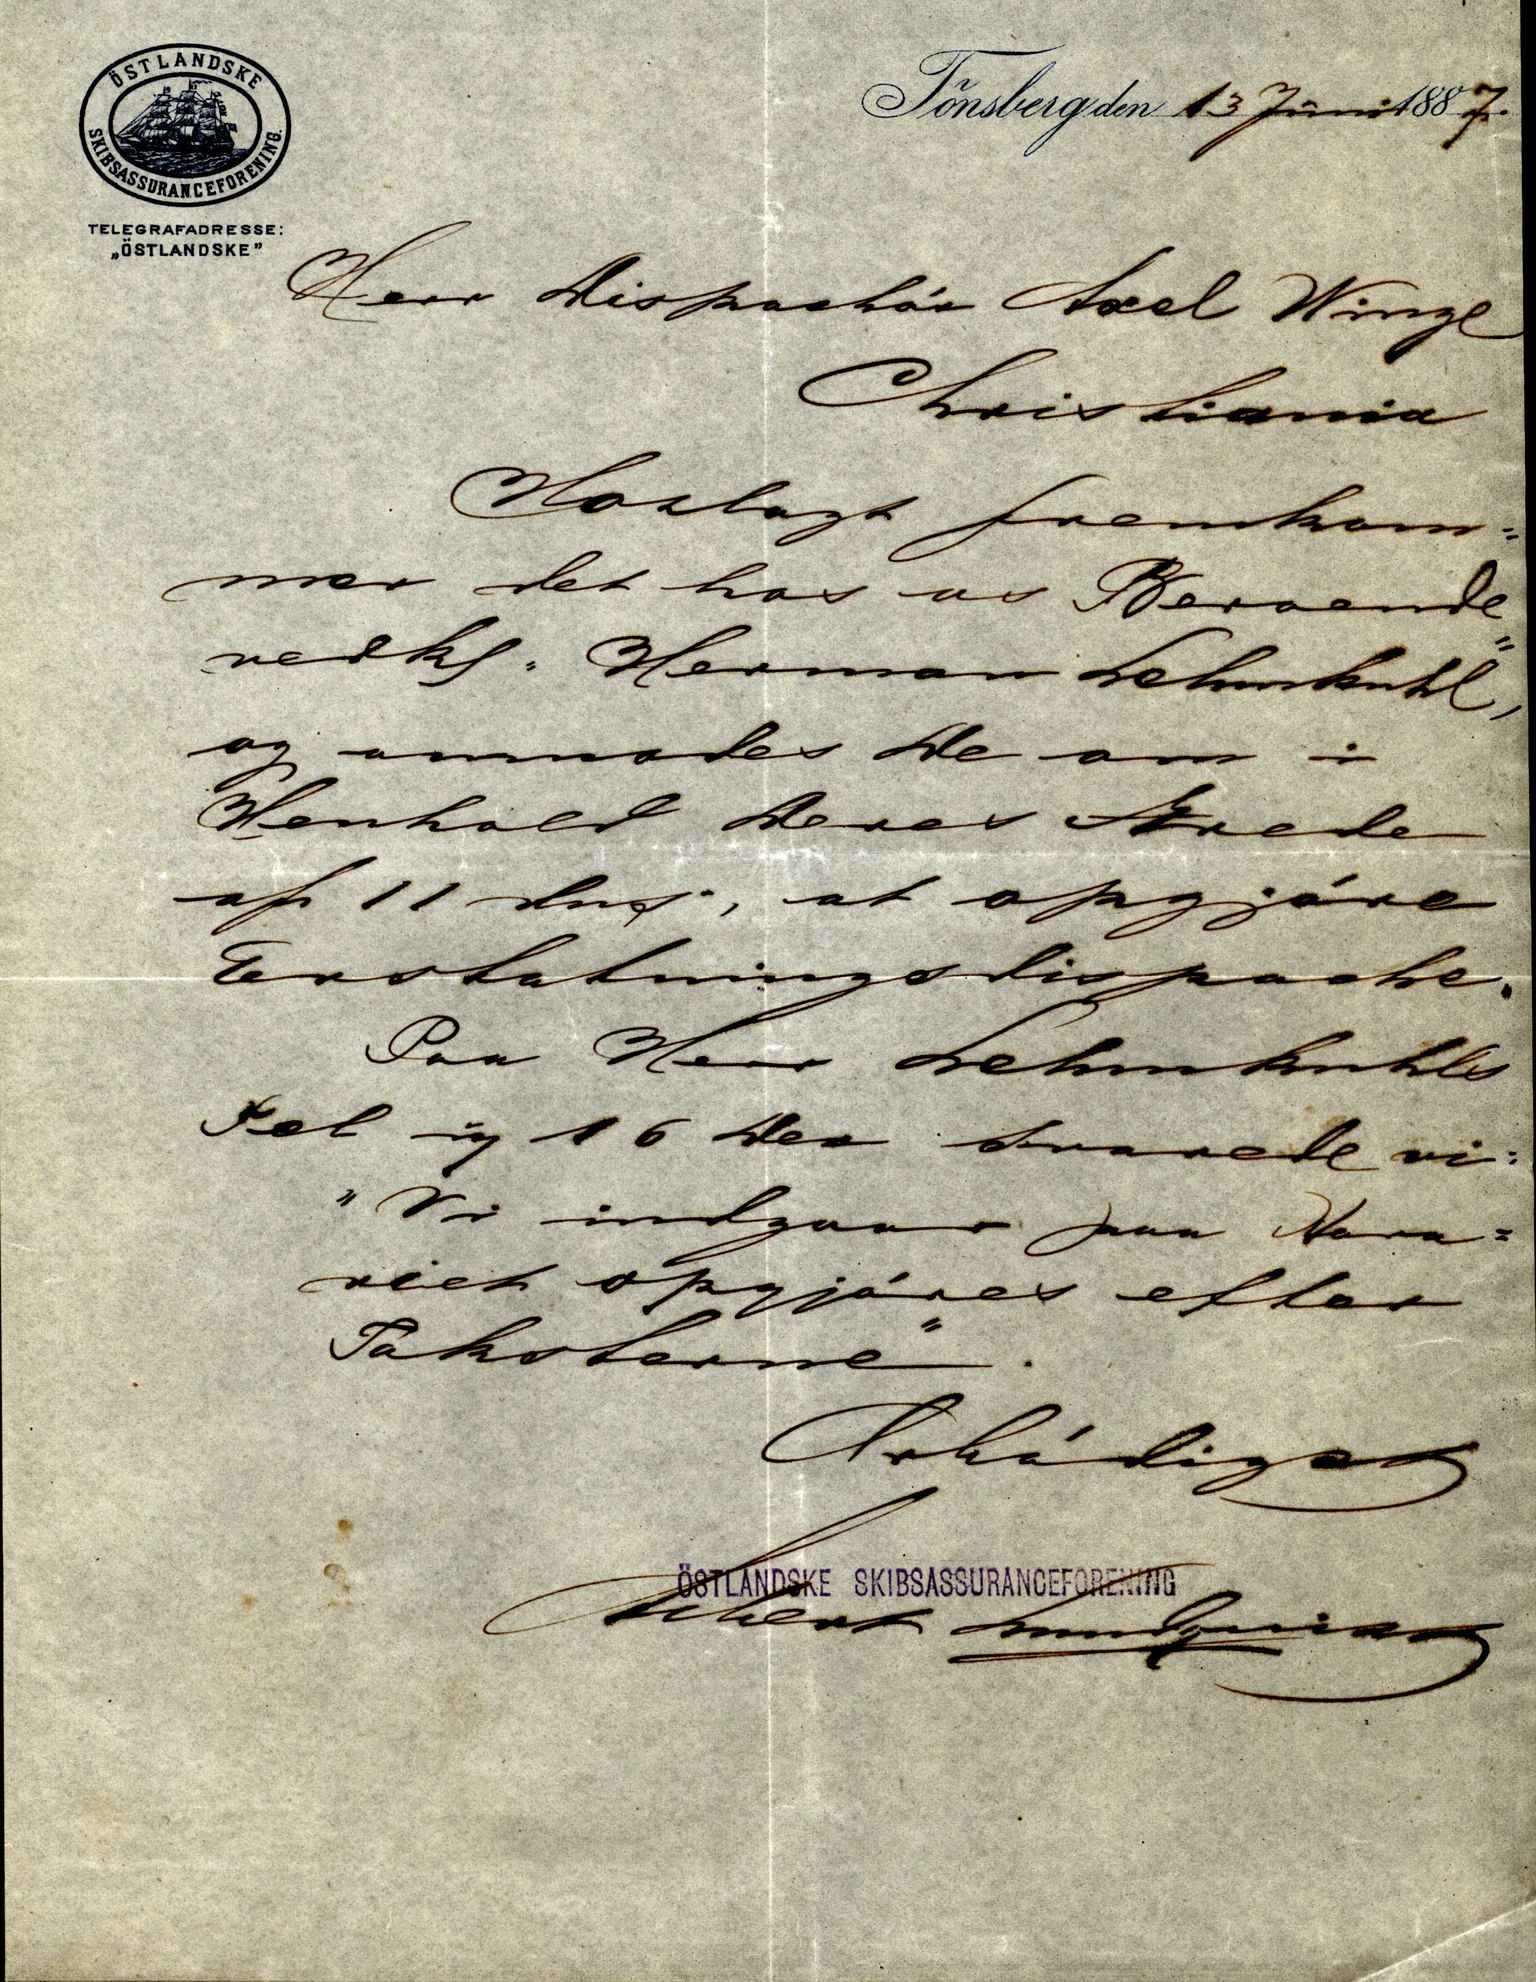 ÖSTLANDSKE
SKIBSASSURANCEFORENING.
TELEGRAFADRESSE:
„ÖSTLANDSKE”
Tönsberg den 13 Juni 1887.
Herr Dispachör Axel Winge
Christiania
Hoslagt fremkom=
mer det hos os Beroende
vedk. "Herman Lehmkuhl",
og anmodes De om i
Henhold Deres Ærede
af 11 ds, at opgjöre
Erstatningsdispache.
Paa Herr Lehmkuhls
Tel 16 Der svarede vi:
"Vi indgaar paa Hava=
riet opgjöres efter
Taksterne".
Arbödigst
ÖSTLANDSKE SKIBSASSURANCEFORENING